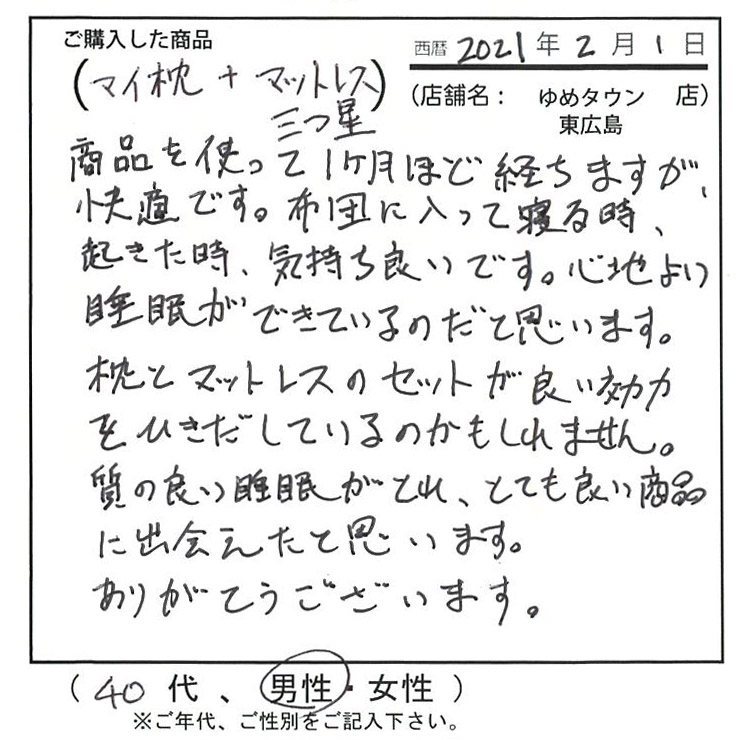 ご購入した商品
西暦 2021年2月1日
(マイ枕 + マットレス)
三つ星
(店舗名: ゆめタウン 店)
東広島
商品を使って1ケ月ほど経ちますが、
快適です。布団に入って寝る時、
起きた時、気持ち良いです。心地よい
睡眠ができているのだと思います。
枕とマットレスのセットが良い効力
をひきだしているのかもしれません。
質の良い睡眠がとれ、とても良い商品
に出会えたと思います。
ありがとうございます。
(40代、男性・女性)
※ご年代、ご性別をご記入下さい。